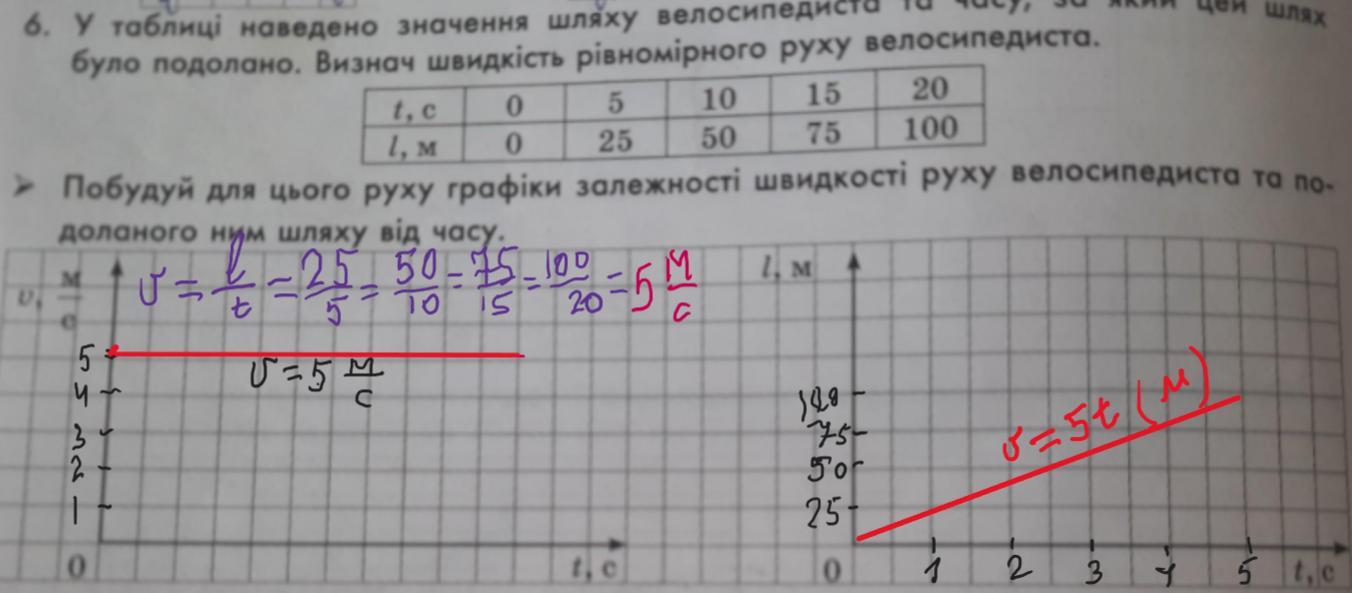 6. У таблиці наведено значення шляху велосипедиста та часу, за який цей шлях
було подолано. Визнач швидкість рівномірного руху велосипедиста.
t, с 0 5 10 15 20
l, м 0 25 50 75 100
➤ Побудуй для цього руху графіки залежності швидкості руху велосипедиста та по-
доланого ним шляху від часу.
υ, м/с
υ = l/t = 25/5 = 50/10 = 75/15 = 100/20 = 5 м/с
5
υ = 5 м/с
4
3
2
1
0
t, с
l, м
100
75
50
25
υ = 5t (м)
0 1 2 3 4 5 t, с